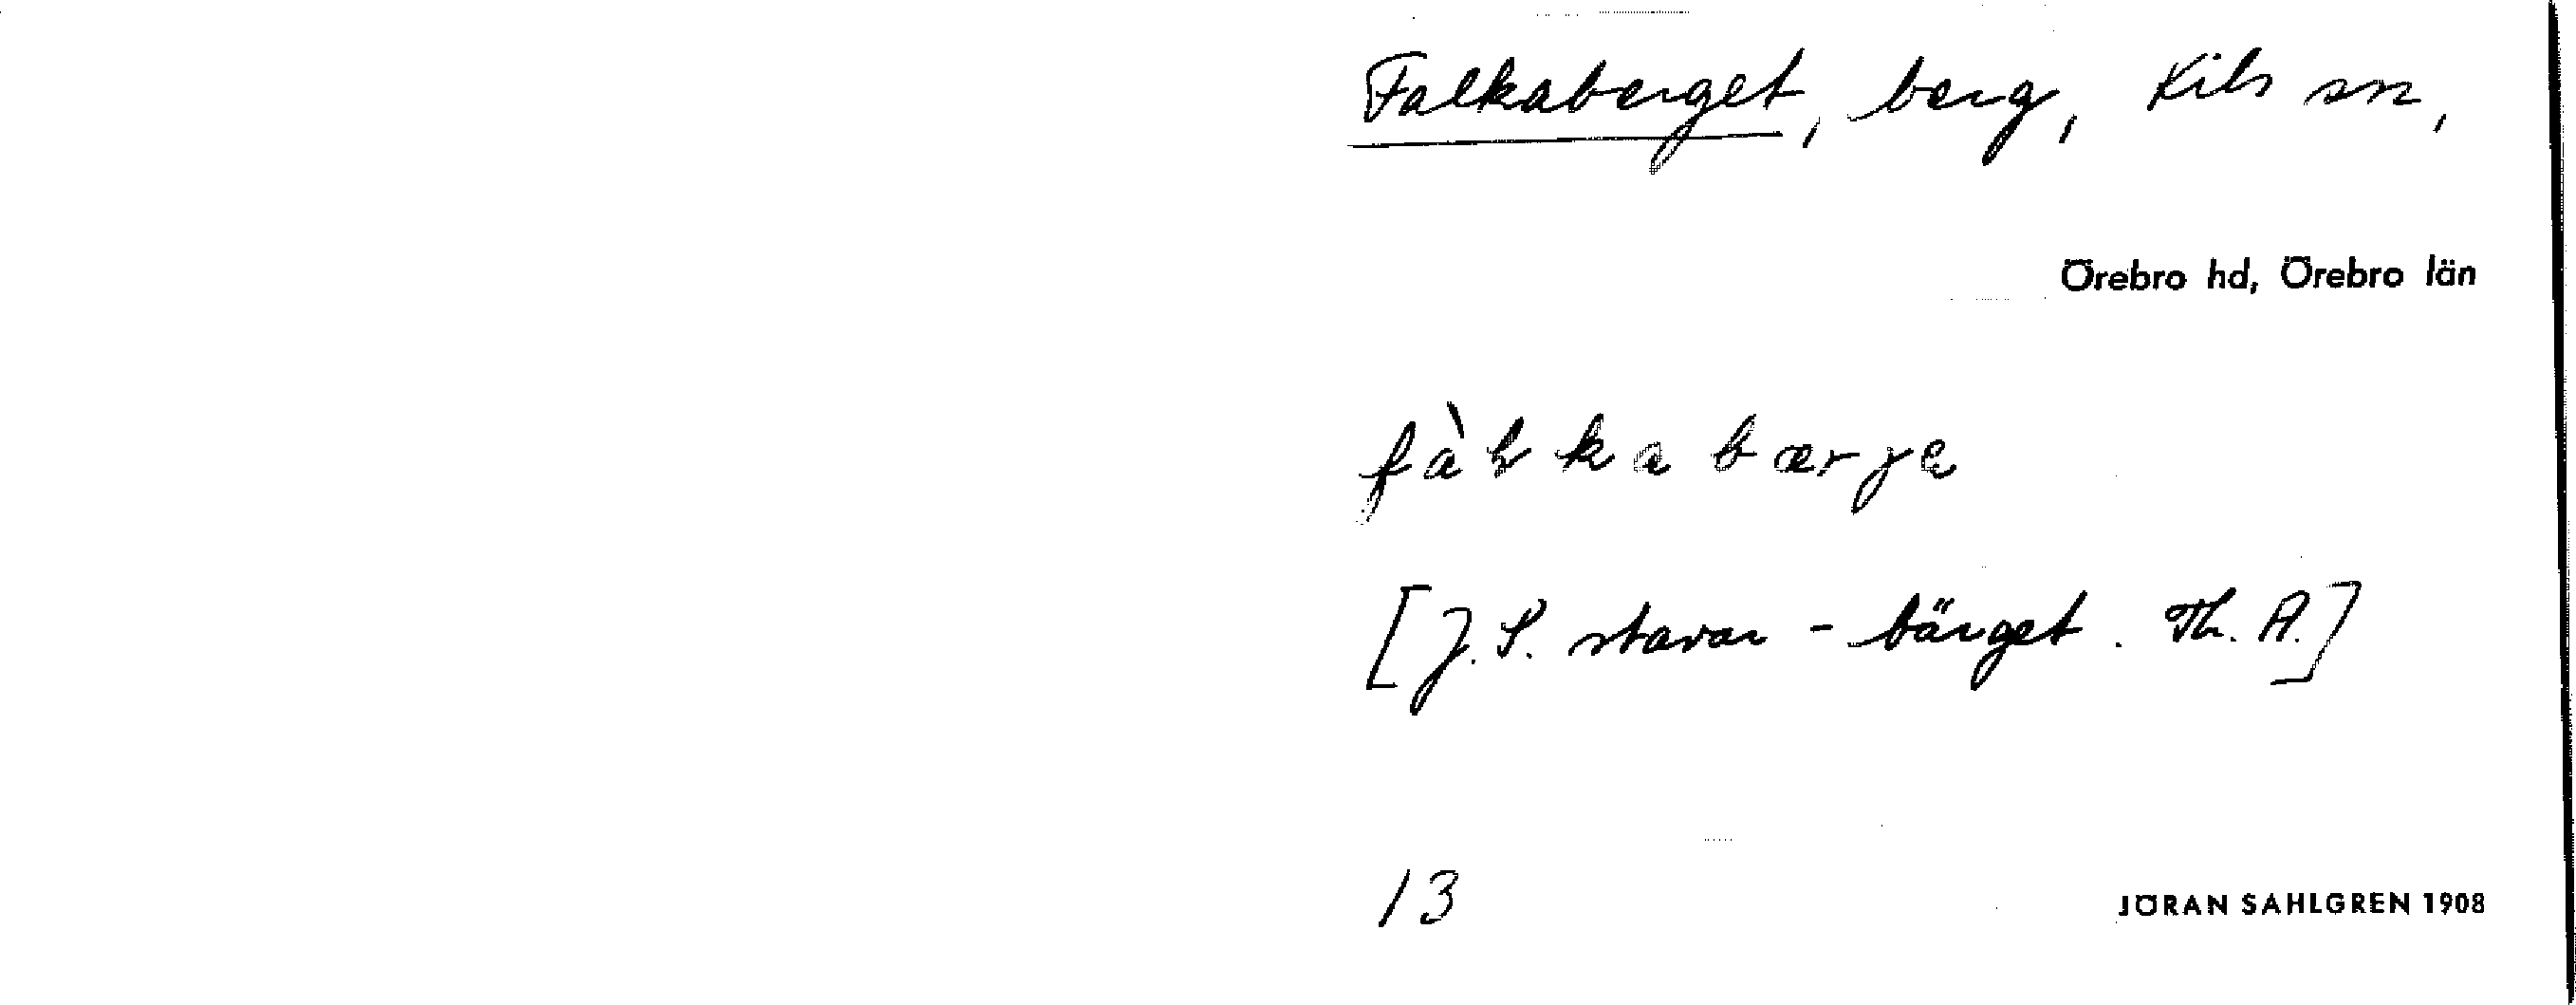 Falkaberget, berg, Kils sn,
Örebro hd, Örebro län
[J. S. stavar -bärget. Th. A.]
13
JÖRAN SAHLGREN 1908